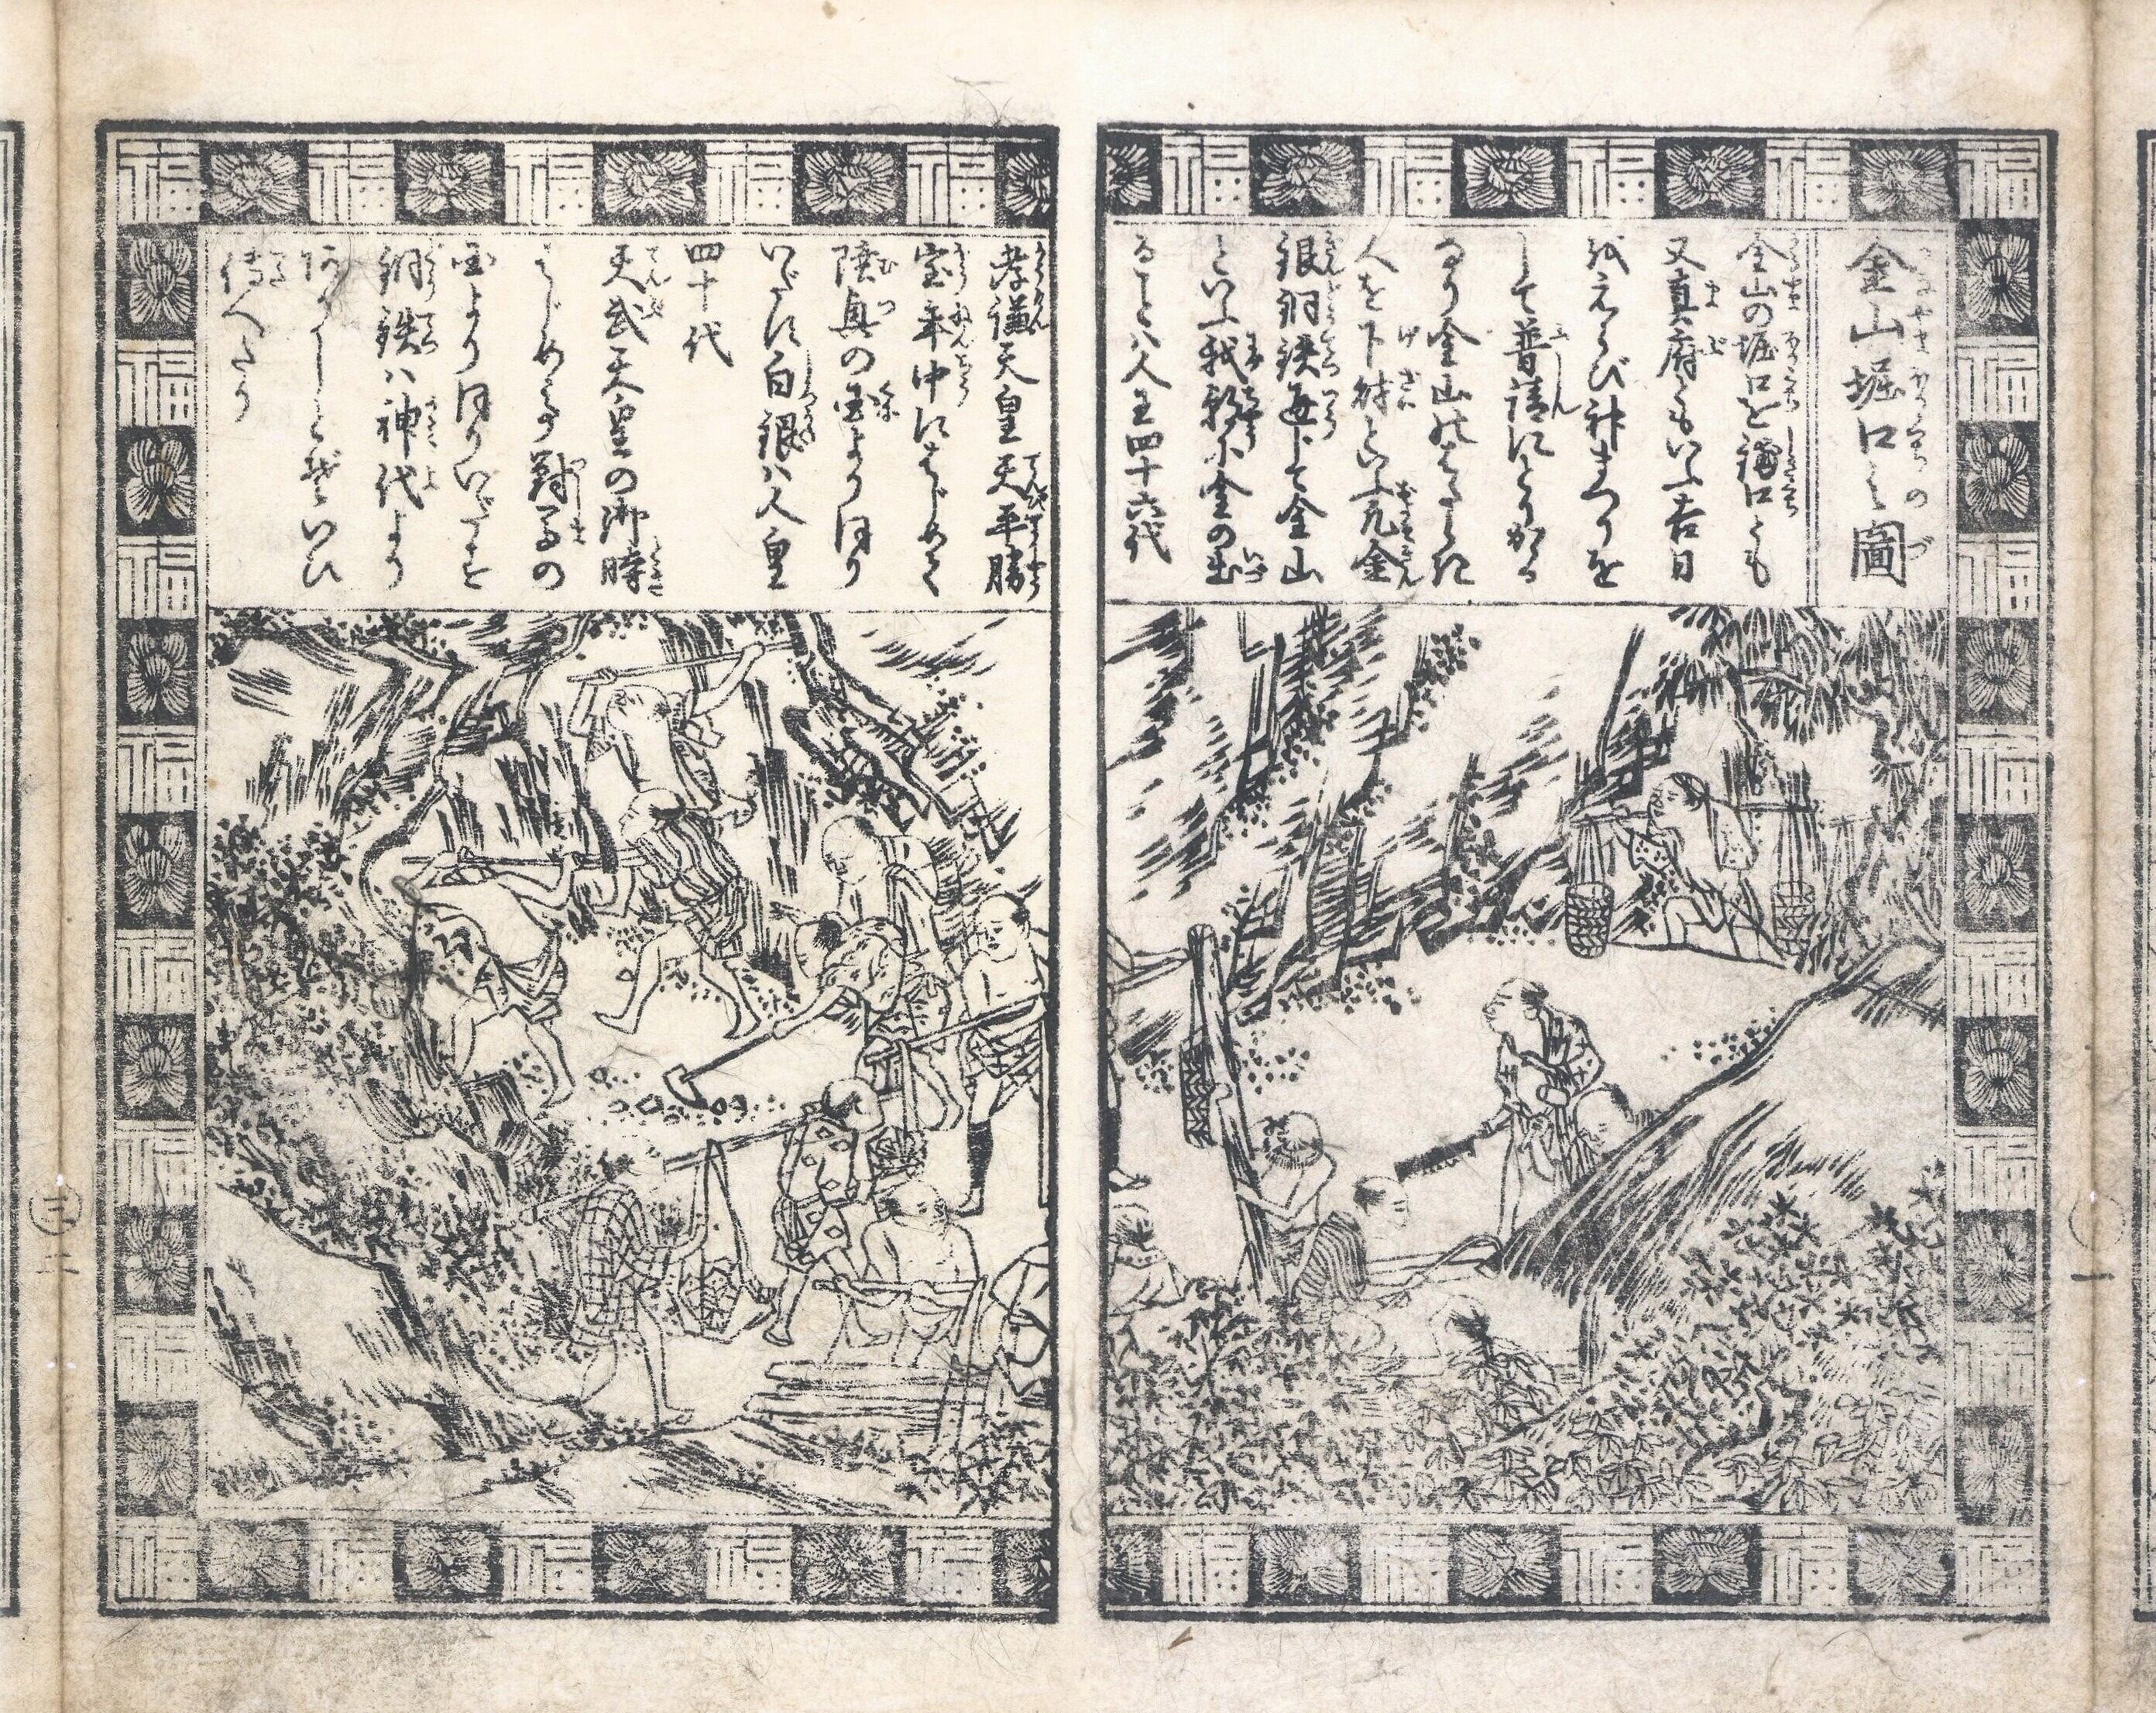 金山堀口之圖
金山の堀口を鋪口とも
又真府ともいふ吉日
をえらび神まつりを
して普請にとりかゝる
なり金山にはたらく
人を下財といふ元金
銀銅鉄毎して金山
といふ我朝に金の出
ること人王四十六代
孝謙天皇天平勝
宝年中にはじめて
陸奥の国より Dほり
いだし白銀ハ人皇
四十代
天武天皇の御時
はじめて對馬の
国よりほりいだせり
銅鉄ハ神代より
ありしとぞいひ
傳へたり